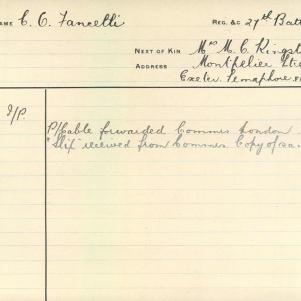 NAME C. C. Fancelli REG. &C 27th Batt
NEXT OF KIN Mrs M. C. Kingst
ADDRESS Montpelier Stre
Exeter. Semaphore.
I/P. P/Cable forwarded Commrs London
"Slip" received from Commrs Copy of